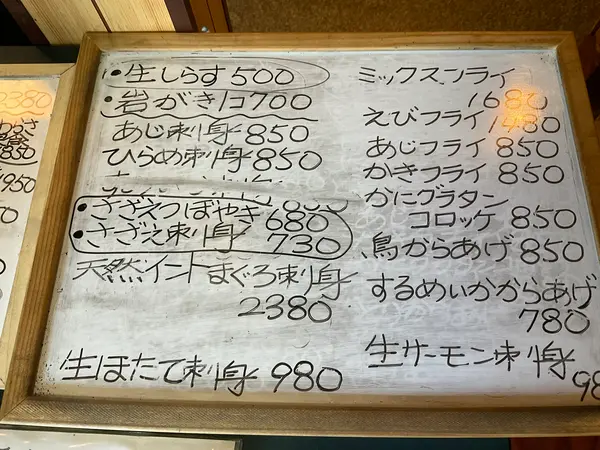 ・生しらす 500
・岩がき1コ 700
あじ刺身 850
ひらめ刺身 850
・さざえつぼやき 680
・さざえ刺身 730
天然インドまぐろ刺身
2380
生ほたて刺身 980
ミックスフライ
1680
えびフライ 1480
あじフライ 850
かきフライ 850
かにグラタン
コロッケ 850
鳥からあげ 850
するめいかからあげ
780
生サーモン刺身
98
2380
850
950